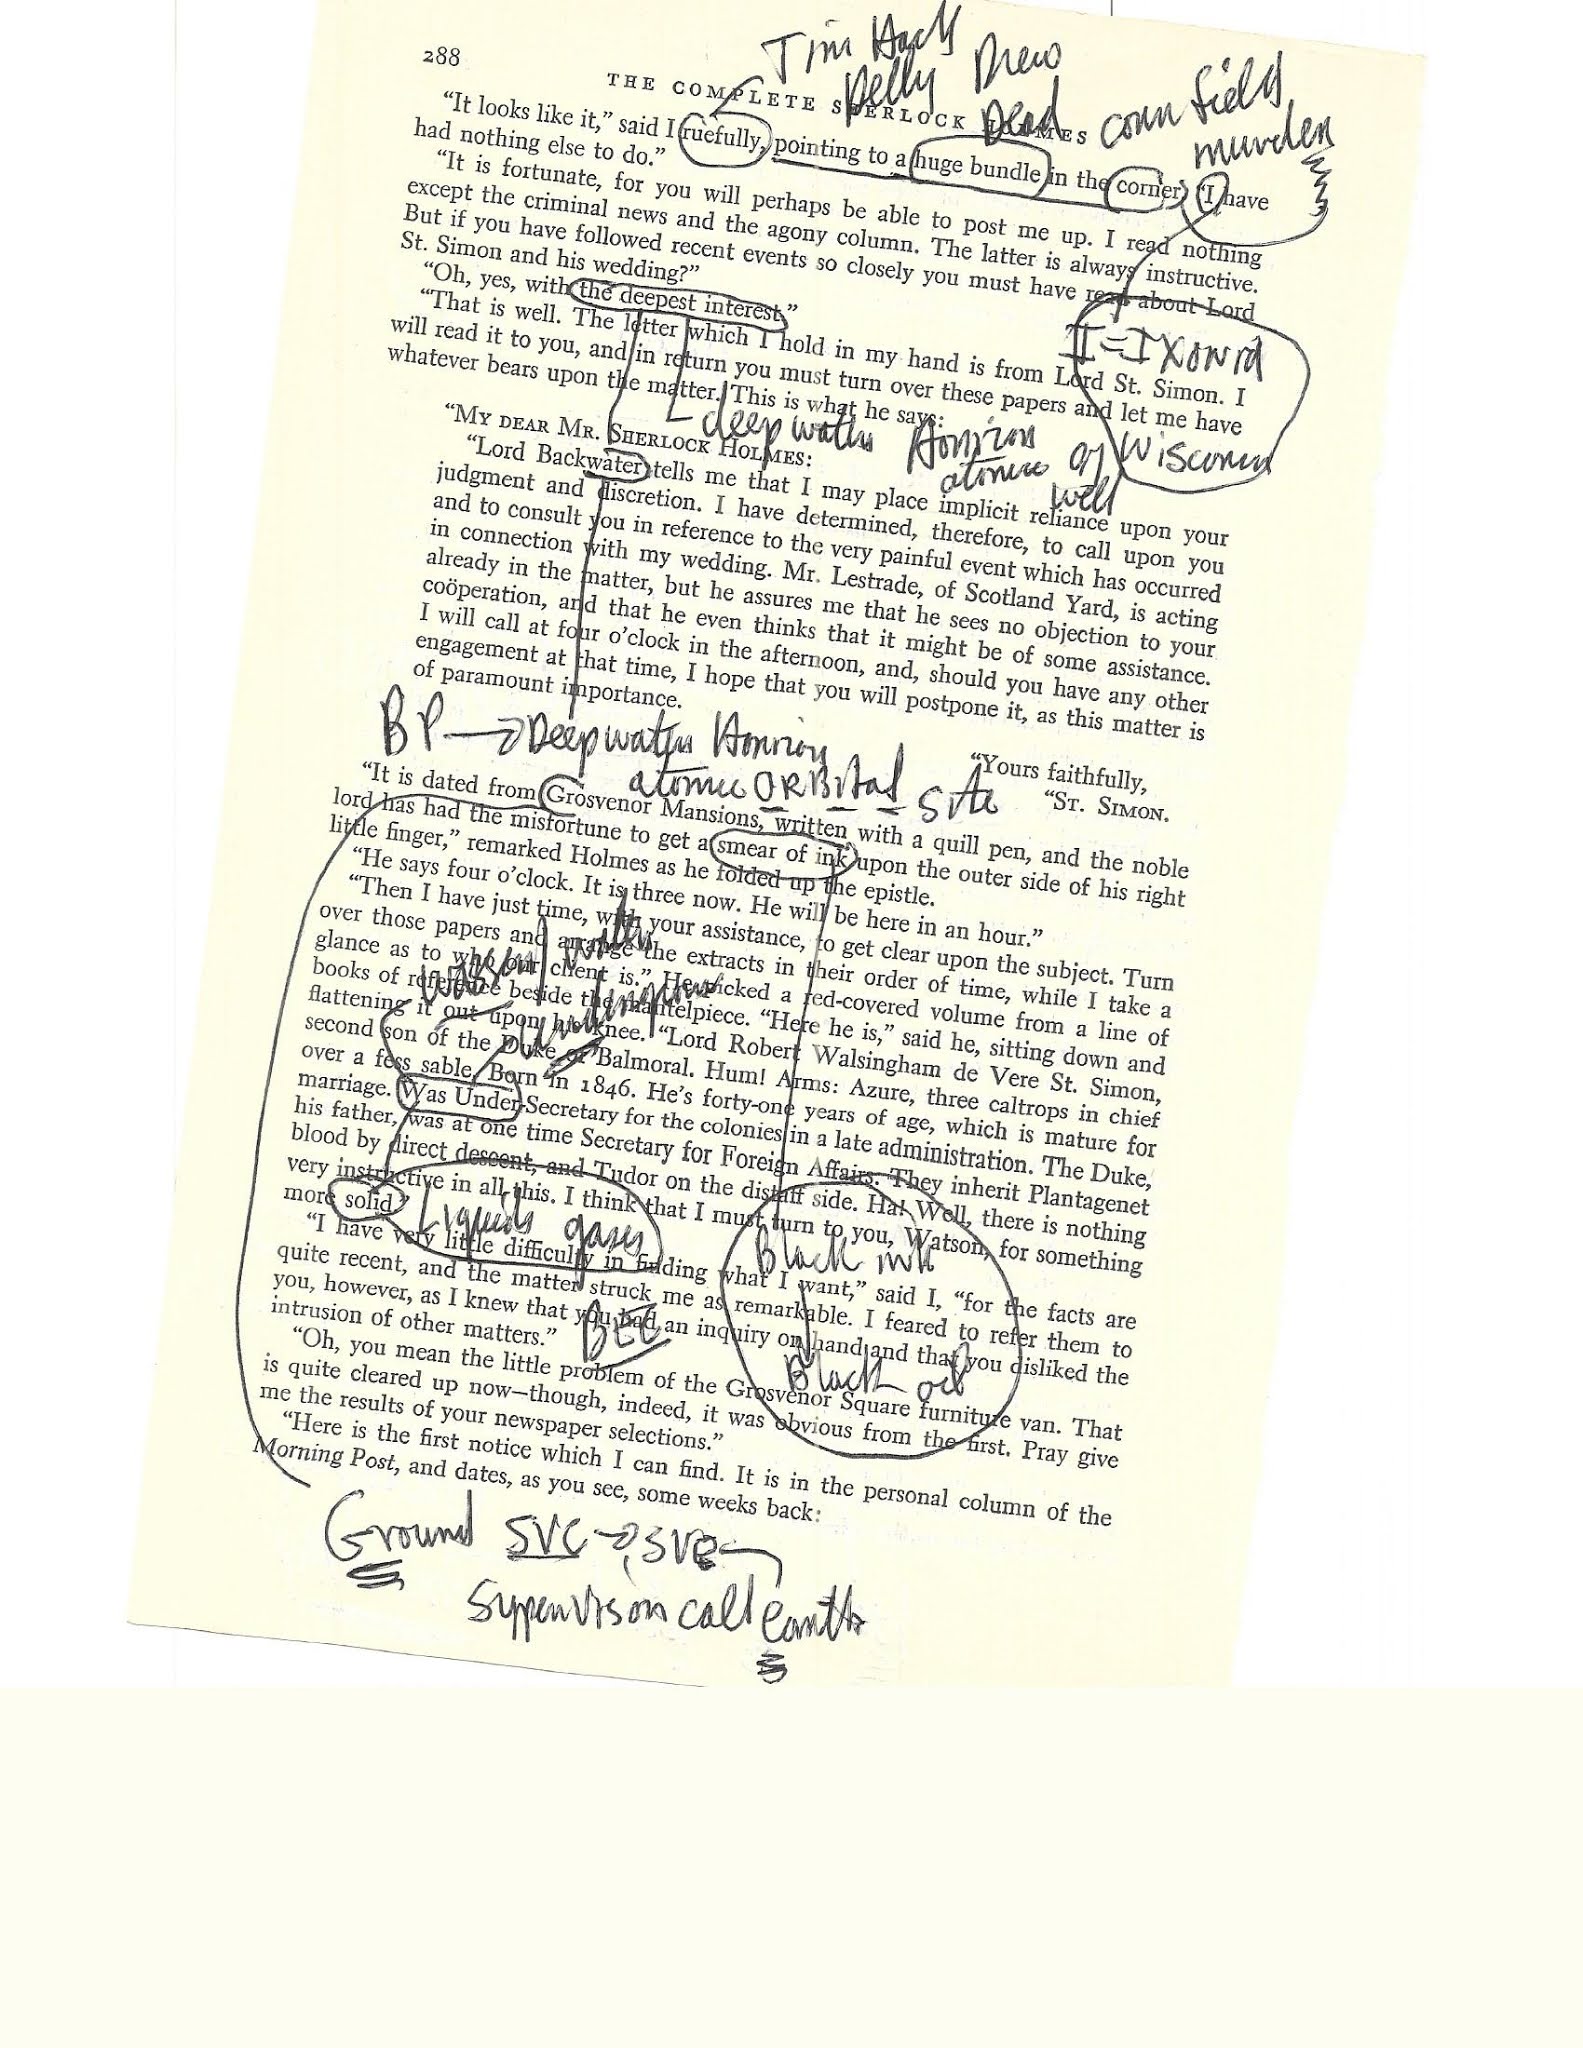 Tim Hack
288
Drew
THE COMPLETE SHERLOCK HOLMES
Dead
corn field
murder
“It looks like it,” said I ruefully, pointing to a huge bundle in the corner. “I have
had nothing else to do.”
“It is fortunate, for you will perhaps be able to post me up. I read nothing
except the criminal news and the agony column. The latter is always instructive.
But if you have followed recent events so closely you must have read about Lord
St. Simon and his wedding?”
“Oh, yes, with the deepest interest.”
“That is well. The letter which I hold in my hand is from Lord St. Simon. I
will read it to you, and in return you must turn over these papers and let me have
whatever bears upon the matter. This is what he says:
“MY DEAR MR. SHERLOCK HOLMES:
“Lord Backwater tells me that I may place implicit reliance upon your
judgment and discretion. I have determined, therefore, to call upon you
and to consult you in reference to the very painful event which has occurred
in connection with my wedding. Mr. Lestrade, of Scotland Yard, is acting
already in the matter, but he assures me that he sees no objection to your
coöperation, and that he even thinks that it might be of some assistance.
I will call at four o’clock in the afternoon, and, should you have any other
engagement at that time, I hope that you will postpone it, as this matter is
of paramount importance.
BP → Deepwater Horizon
“Yours faithfully,
atomic ORBItal site
“ST. SIMON.
“It is dated from Grosvenor Mansions, written with a quill pen, and the noble
lord has had the misfortune to get a smear of ink upon the outer side of his right
little finger,” remarked Holmes as he folded up the epistle.
“He says four o’clock. It is three now. He will be here in an hour.”
“Then I have just time, with your assistance, to get clear upon the subject. Turn
over those papers and arrange the extracts in their order of time, while I take a
glance as to who our client is.” He picked a red-covered volume from a line of
books of reference beside the mantelpiece. “Here he is,” said he, sitting down and
flattening it out upon his knee. “Lord Robert Walsingham de Vere St. Simon,
second son of the Duke of Balmoral. Hum! Arms: Azure, three caltrops in chief
over a fess sable. Born in 1846. He’s forty-one years of age, which is mature for
marriage. Was Under-Secretary for the colonies in a late administration. The Duke,
his father, was at one time Secretary for Foreign Affairs. They inherit Plantagenet
blood by direct descent, and Tudor on the distaff side. Ha! Well, there is nothing
very instructive in all this. I think that I must turn to you, Watson, for something
more solid.”
Liquids gases
Black ink
“I have very little difficulty in finding what I want,” said I, “for the facts are
quite recent, and the matter struck me as remarkable. I feared to refer them to
you, however, as I knew that you had an inquiry on hand and that you disliked the
intrusion of other matters.”
BEE
Black oil
“Oh, you mean the little problem of the Grosvenor Square furniture van. That
is quite cleared up now—though, indeed, it was obvious from the first. Pray give
me the results of your newspaper selections.”
“Here is the first notice which I can find. It is in the personal column of the
Morning Post, and dates, as you see, some weeks back:
Ground SVC → SVE
call earth